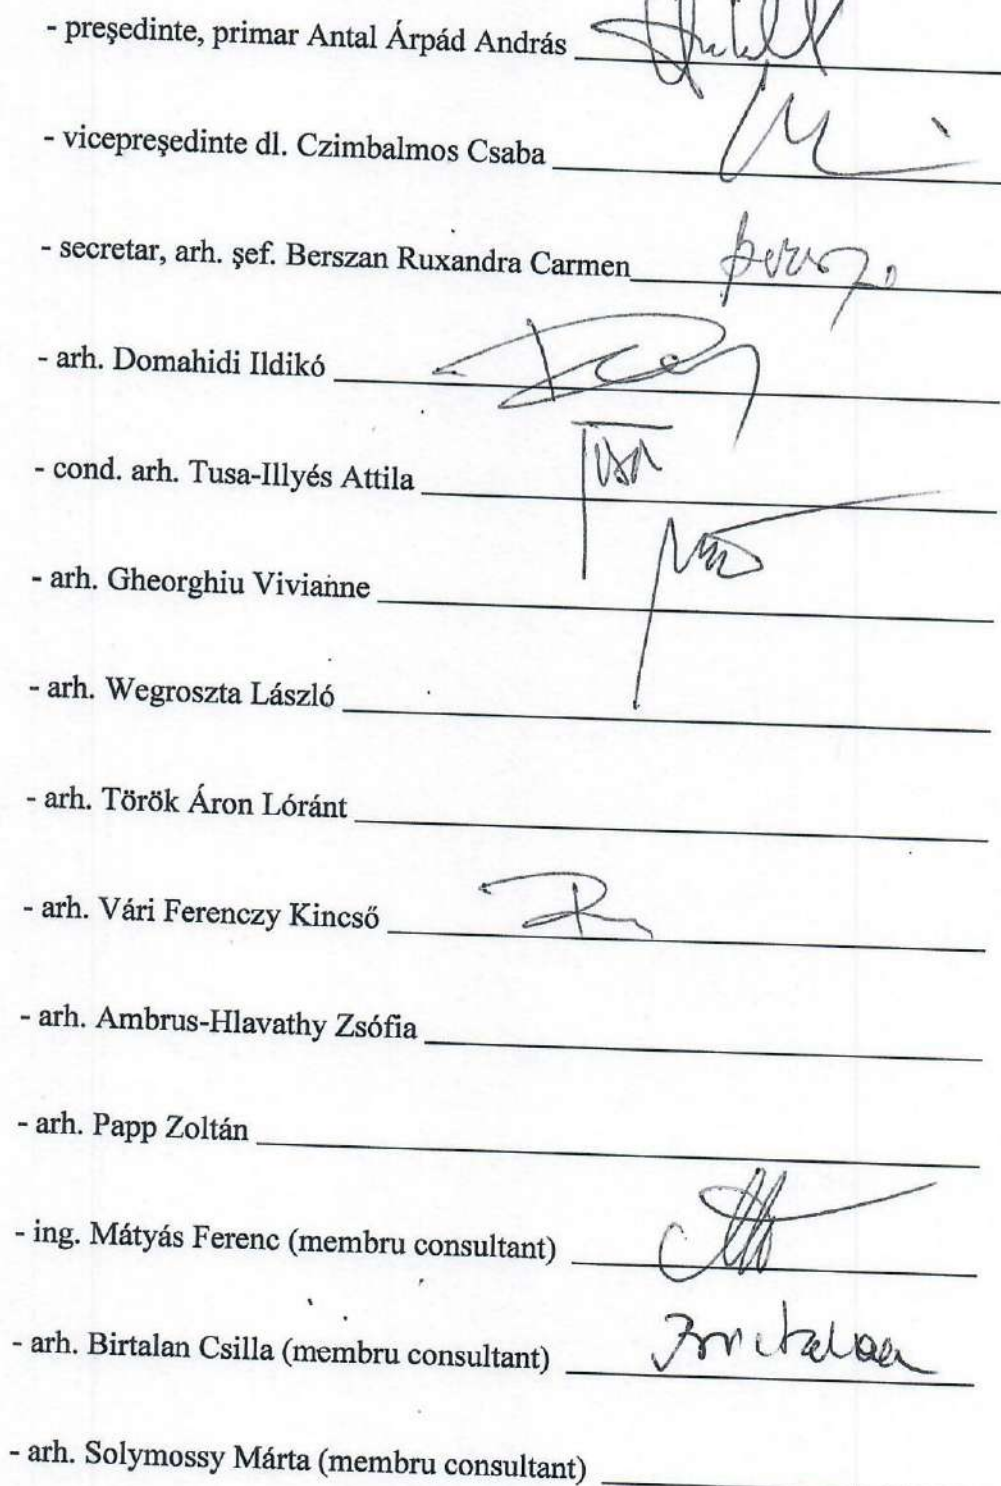 - preşedinte, primar Antal Árpád András
- vicepreşedinte dl. Czimbalmos Csaba
- secretar, arh. şef. Berszan Ruxandra Carmen
- arh. Domahidi Ildikó
- cond. arh. Tusa-Illyés Attila
- arh. Gheorghiu Vivianne
- arh. Wegroszta László
- arh. Török Áron Lóránt
- arh. Vári Ferenczy Kincső
- arh. Ambrus-Hlavathy Zsófia
- arh. Papp Zoltán
- ing. Mátyás Ferenc (membru consultant)
- arh. Birtalan Csilla (membru consultant)
- arh. Solymossy Márta (membru consultant)